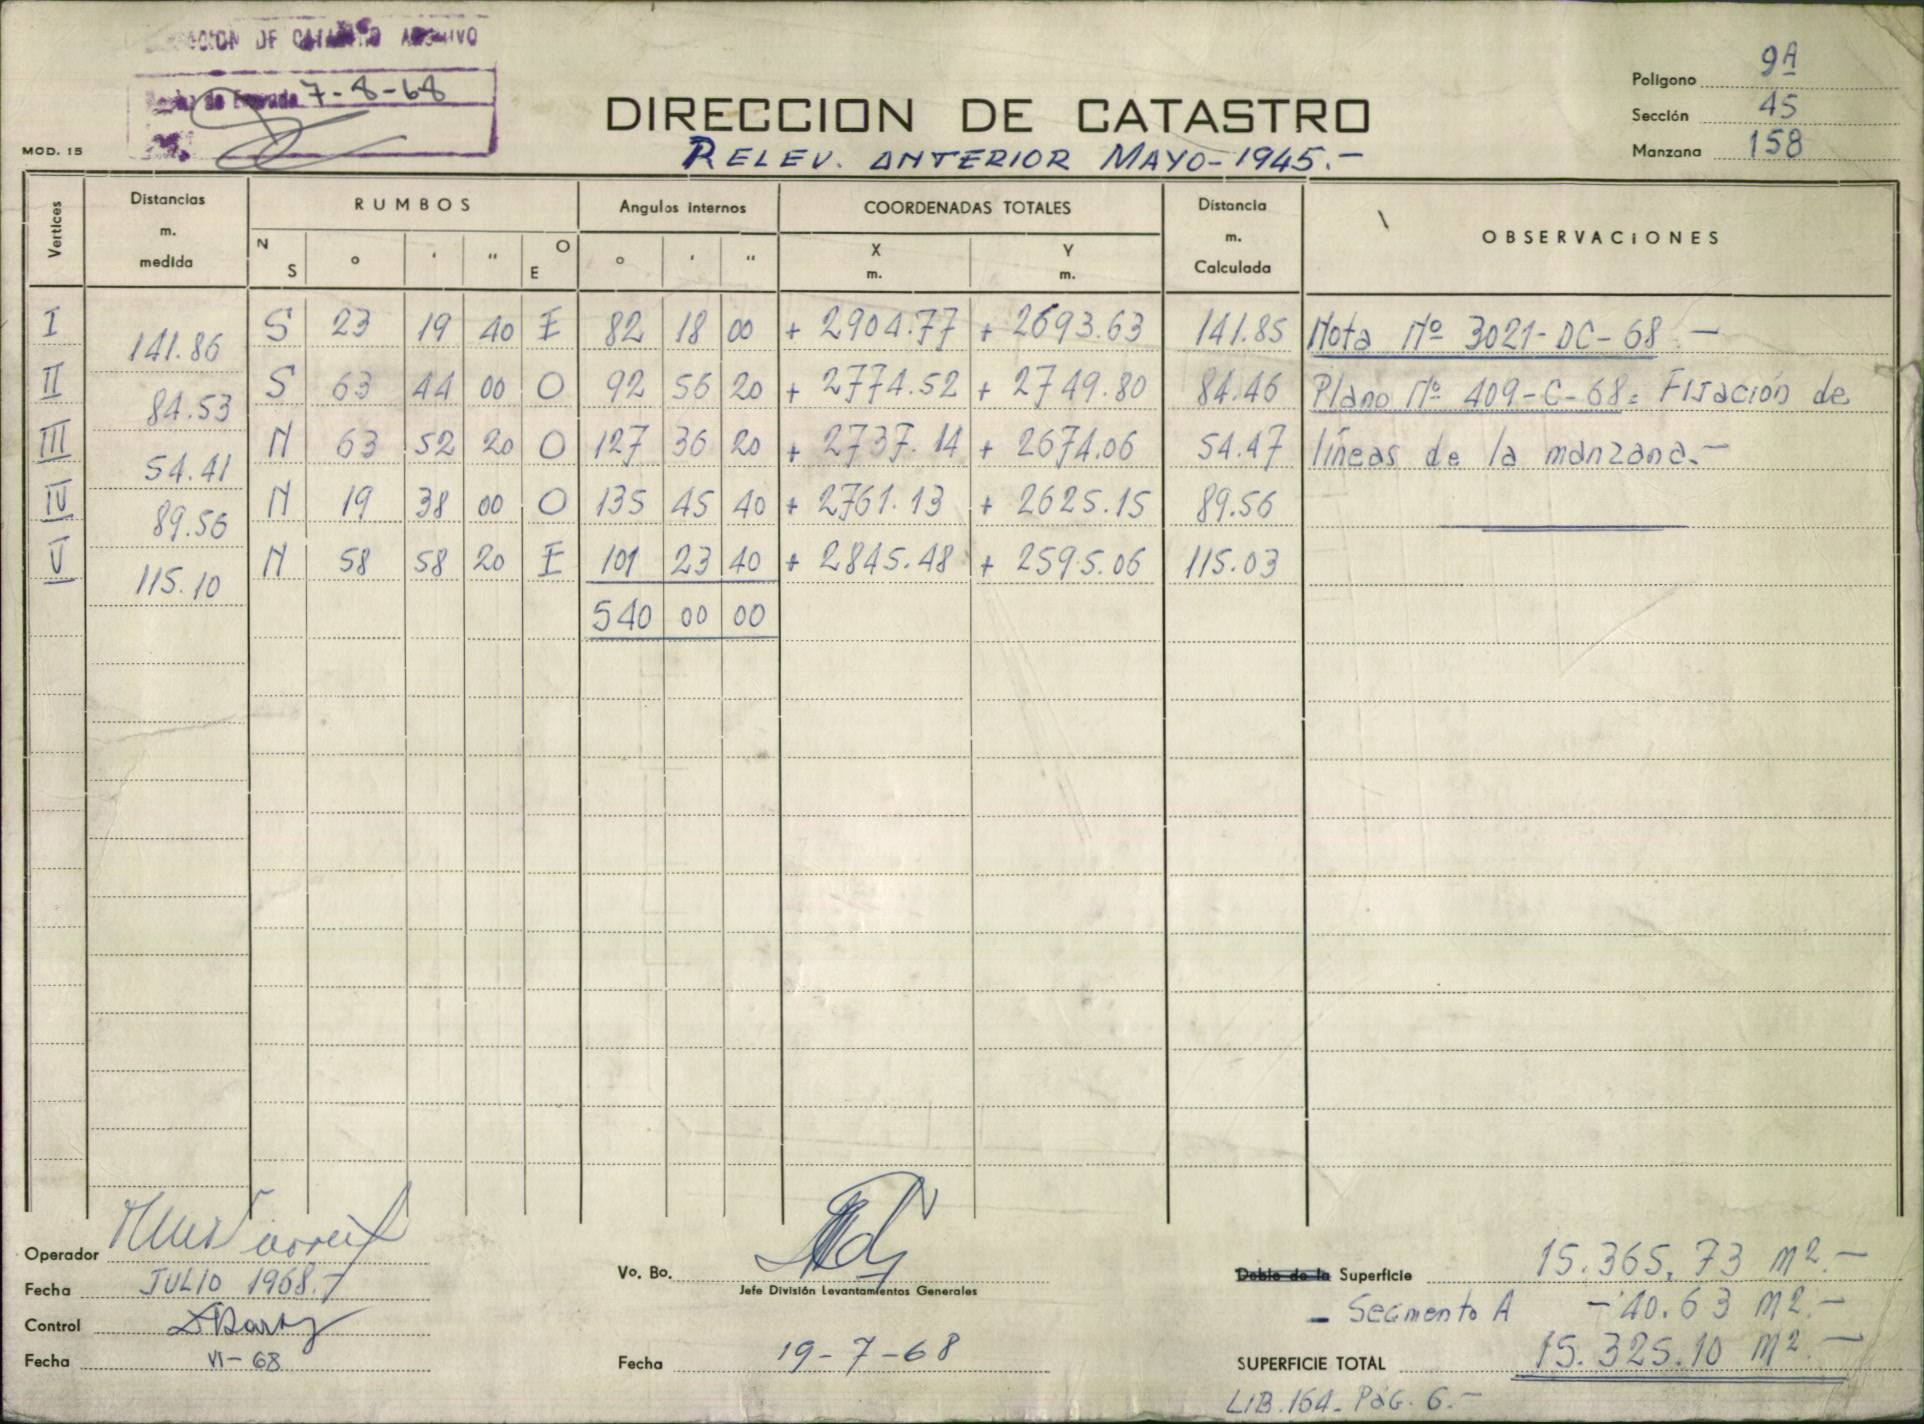 DE CATASTRO ARCHIVO
7-8-68
MOD. 15
DIRECCION DE CATASTRO
RELEV. ANTERIOR MAYO-1945.-
Polígono 9A
Sección 45
Manzana 158
Vertices
Distancias m. medida
RUMBOS
N S ° ' " O E
Angulos internos
° ' "
COORDENADAS TOTALES
X m. Y m.
Distancia m. Calculada
OBSERVACIONES
I 141.86 S 23 19 40 E 82 18 00 + 2904.77 + 2693.63 141.85 Nota Nº 3021-DC-68.-
II 84.53 S 63 44 00 O 92 56 20 + 2774.52 + 2749.80 84.46 Plano Nº 409-C-68= Fijación de
III 54.41 N 63 52 20 O 127 36 20 + 2737.14 + 2674.06 54.47 líneas de la manzana.-
IV 89.56 N 19 38 00 O 135 45 40 + 2761.13 + 2625.15 89.56
V 115.10 N 58 58 20 E 101 23 40 + 2845.48 + 2595.06 115.03
540 00 00
Operador
Fecha JULIO 1968.-
Control
Fecha VI-68
Vo. Bo.
Jefe División Levantamientos Generales
Fecha 19-7-68
Doble de la Superficie 15.365,73 m2.-
- Segmento A - 40.63 m2.-
SUPERFICIE TOTAL 15.325.10 m2.-
LIB.164- Pág. 6.-